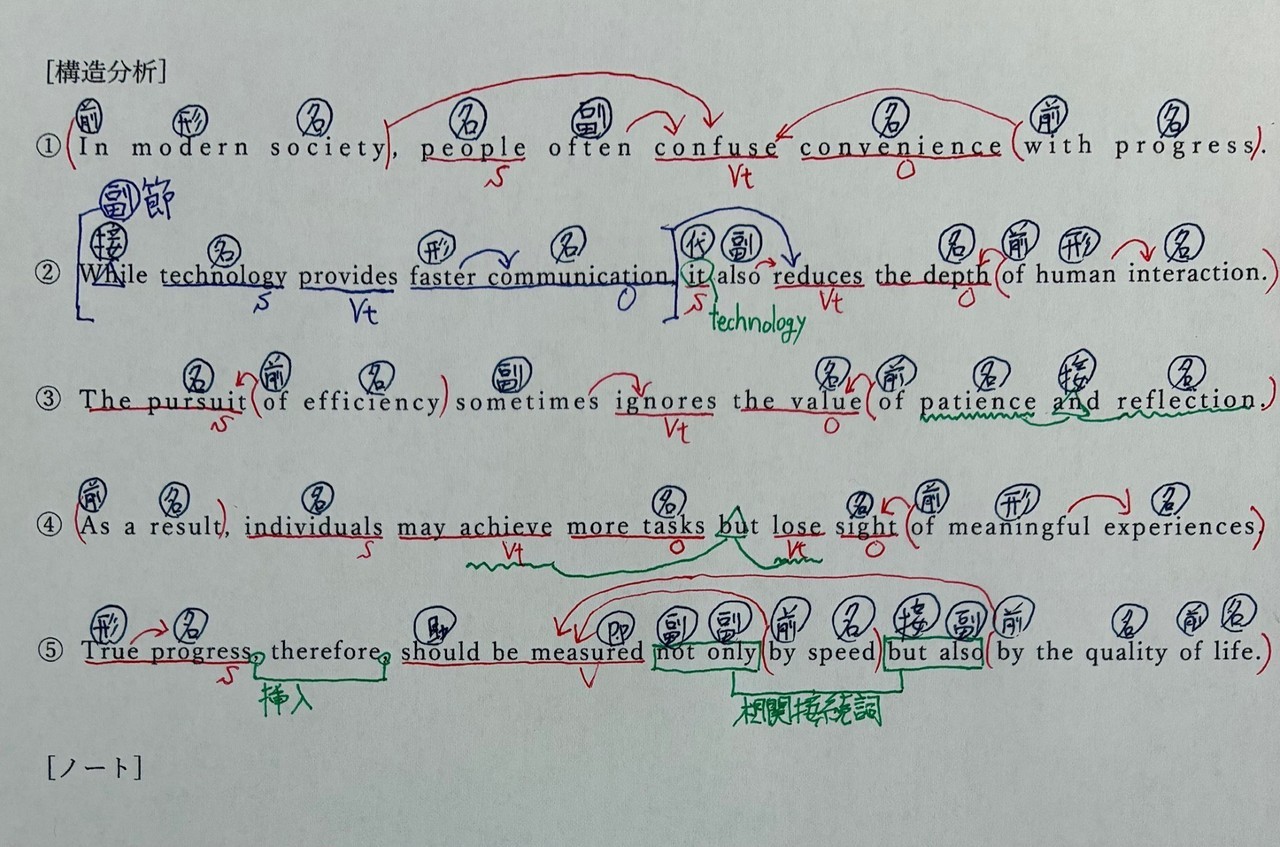 [構造分析]
前 形 名 名 副 名 前 名
① (In modern society), people often confuse convenience (with progress).
S Vt O
副節
接 名 形 名 代 副 名 前 形 名
② [While technology provides faster communication] it also reduces the depth (of human interaction.)
S Vt O S Vt O
technology
名 前 名 副 名 前 名 接 名
③ The pursuit (of efficiency) sometimes ignores the value (of patience and reflection.)
S Vt O
前 名 名 名 名 前 形 名
④ (As a result), individuals may achieve more tasks but lose sight (of meaningful experiences)
S Vt O Vt O
形 名 助 副 副 前 名 接 副 前 名 前 名
⑤ True progress, therefore, should be measured not only (by speed) but also (by the quality of life.)
S V
挿入 相関接続詞
[ノート]